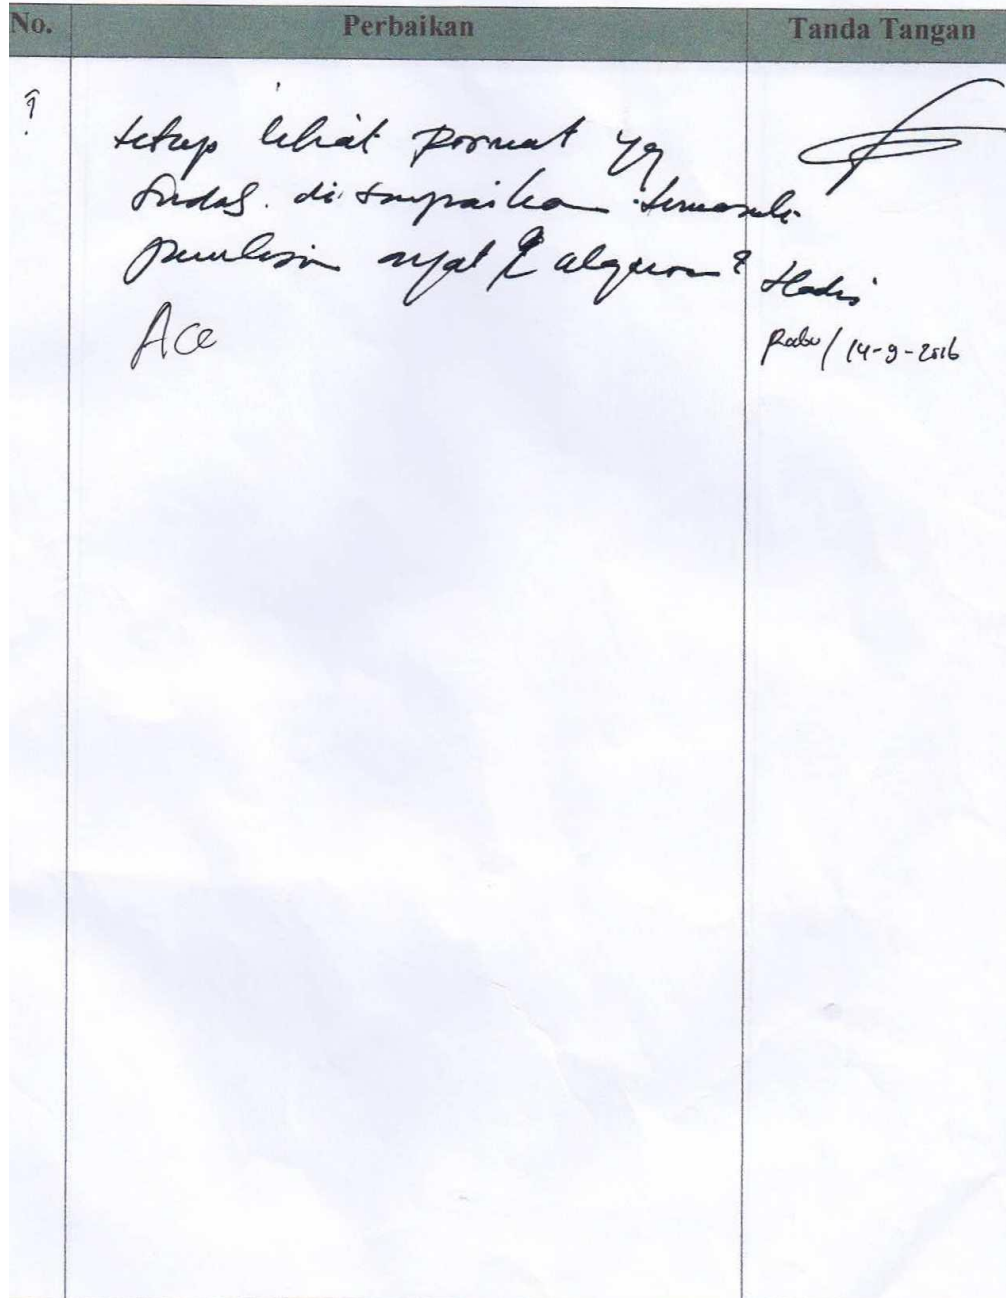 No. Perbaikan Tanda Tangan
tetap lihat format yg
sudah di sampaikan termasuk
penulisan ayat² alquran & Hadis
Acc
Rabu / 14-9-2016